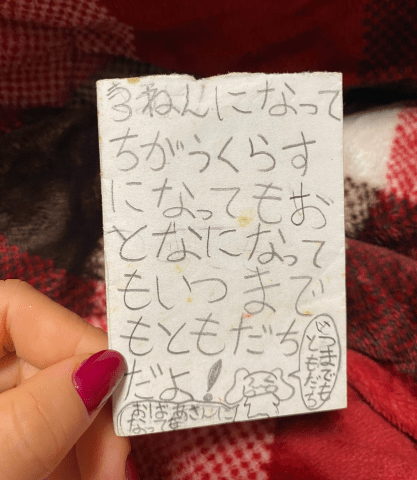 ねんになって
ちがうくらす
になってもお
となになって
もいつまで
もともだち
だよ!
いつまでも
ともだち
おばあさんに
なっても